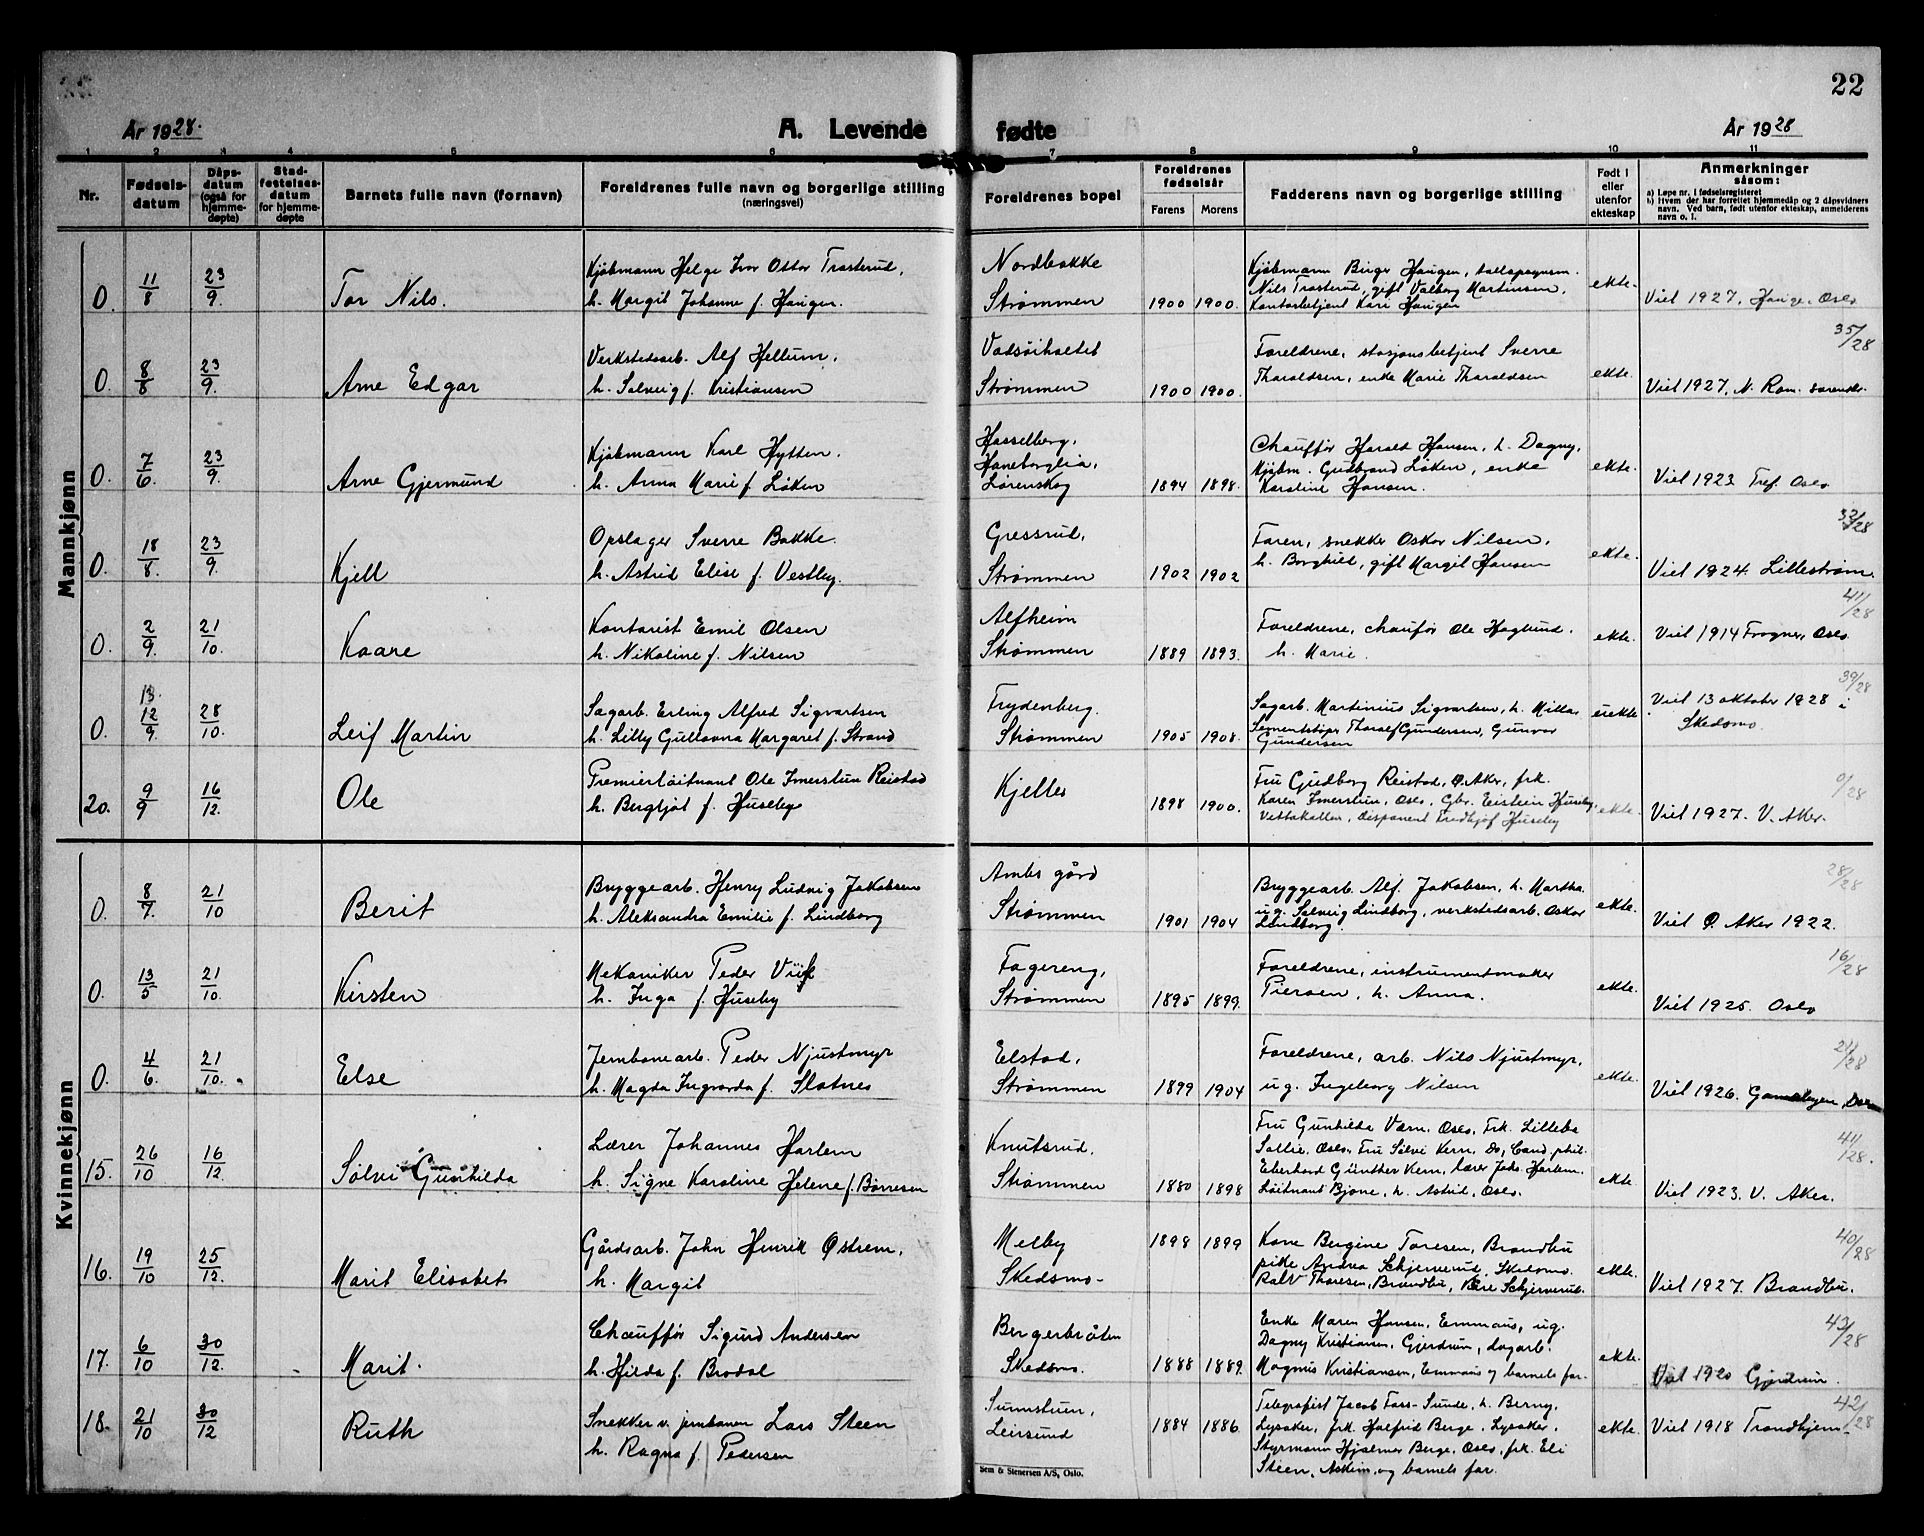 22
År 1928. A. Levende fødte År 1928
1 2 3 4 5 6 7 8 9 10 11
Nr.
Fødsels-
datum
Dåps-
datum
(også for
hjemme-
døpte)
Stad-
festelses-
datum
for hjemme-
døpte
Barnets fulle navn (fornavn)
Foreldrenes fulle navn og borgerlige stilling
(næringsvei)
Foreldrenes bopel
Foreldrenes
fødselsår
Farens Morens
Fadderens navn og borgerlige stilling
Født i
eller
utenfor
ekteskap
Anmerkninger
såsom:
a) Løpe nr. i fødselsregisteret
b) Hvem der har forrettet hjemmedåp og 2 dåpsvidners
navn. Ved barn, født utenfor ekteskap, anmelderens
navn o. l.
Mannkjønn
0. 11/8 23/9. Tor Nils.
Kjøbmann Helge Ivar Ottar Trosterud,
h. Margit Johanne f. Haugen.
Nordbakke
Strømmen 1900 1900.
Kjøbmann Birger Haugen,
Nils Trosterud, gift Valborg Martinsen,
Kontorbetjent Kari Haugen
ekte.
Viet 1927, Hauge, Oslo
0. 8/8 23/9. Arne Edgar
Verkstedsarb. Alf Hellum,
h. Solveig f. Kristiansen
Strømmen 1900 1900.
Foreldrene, stasjonsbetjent Sverre
Tharaldsen, enke Marie Tharaldsen
ekte.
35/28
Viet 1927, N. Rom.
0. 7/6 23/9. Arne Gjermund
Kjøbmann Karl Hytten.
h. Anna Marie f. Løken
Hasselberg,
Haneborglia,
Lørenskog 1894 1898.
Chauffør Harald Hansen, h. Dagny,
Kjøbm. Gudbrand Løken, enke
Karoline Hansen.
ekte.
Viet 1923 Tref. Oslo
0. 18/8 23/9. Kjell
Opslager Sverre Bakke.
h. Astrid Elise f. Vestby.
Gressrud,
Strømmen 1902 1902
Faren, snekker Oskar Nilsen,
h. Borghild, gift Margit Hansen
ekte.
32/28
Viet 1924. Lillestrøm.
0. 2/9. 21/10. Kaare
Kontorist Emil Olsen
h. Nikoline f. Nilsen
Alfheim
Strømmen 1889 1893.
Foreldrene, chauffør Ole Haglund.
h. Marie.
ekte.
41/28
Viet 1914 Frogner, Oslo
0. 13. 12/9. 28/10. Leif Martin
Sagarb. Erling Alfred Sigvartsen
h. Lilly Gullovna Margaret f. Strand
Frydenberg.
Strømmen 1905 1908.
Sagarb. Martinius Sigvartsen, h. Milla
Sementstøper Tharalf Gundersen, Gunvor
Gundersen
uekte
39/28
Viet 13 oktober 1928 i
Skedsmo.
20. 9/9 16/12. Ole
Premierløitnant Ole Imerslun Reistad
h. Bergljot f. Huseby
Kjeller 1898 1900.
Fru Gudborg Reistad, Ø. Aker, frk.
Karen Imerslun, Oslo, Gbr. Eistein Huseby,
Vettakollen, disponent Fredtjof Huseby
ekte.
0/28
Viet 1927. V. Aker.
Kvinnekjønn
0. 8/7. 21/10 Berit
Bryggearb. Henry Ludvig Jakobsen
h. Aleksandra Emilie f. Lindborg
Ambs gård
Strømmen 1901 1904
Bryggearb. Alf. Jakobsen, h. Martha.
ug. Solveig Lindborg, verkstedsarb. Oskar
Lindborg.
ekte.
28/28
Viet Ø. Aker 1922.
0. 13/5 21/10. Kirsten
Mekaniker Peder Viik
h. Inga f. Huseby
Fagereng,
Strømmen 1895 1899.
Foreldrene, instrumentmaker
Piersen, h. Anna.
ekte.
16/28
Viet 1925. Oslo
0. 4/6. 21/10. Else
Jernbanearb. Peder Njustmyr
h. Magda Ingvarda f. Slotnes
Elstad,
Strømmen 1899 1904
Foreldrene, arb. Nils Njustmyr,
ug. Ingeborg Nilsen
ekte.
21/28
Viet 1926.
15. 26/10 16/12 Sølvi Gunhilda
Lærer Johannes Harlem
h. Signe Karoline Helene f. Børresen
Knutsrud,
Strømmen 1880 1898
Fru Gunhilda Værn. Oslo. Frk. Lilleba
Oslo, Fru Sølvi Kern, Do, Cand. phil.
Eberhard Günther Kern, lærer Johs. Harlem.
Løitnant Bjone, h. Astrid, Oslo.
ekte.
44/128.
Viet 1923. V. Aker.
16. 19/10 25/12. Marit Elisabet
Gårdsarb. John Henrik Østrem,
h. Margit
Melby
Skedsmo. 1898 1899
Kone Bergine Toresen, Brandbu
pike Andrea Schjerverud, Skedsmo.
Ralv Thoresen, Brandbu, Kåre Schjerverud.
ekte.
40/28
Viet 1927. Brandbu.
17. 6/10 30/12. Marit.
Chauffør Sigurd Andersen
h. Hilda f. Brodal
Bergerbråten
Skedsmo. 1888 1889.
Enke Maren Hansen, Emmaus, ug.
Dagny Kristiansen, Gjerdrum, dagarb.
Magnus Kristiansen, Emmaus og barnets far.
ekte.
43/28
Viet 1920 Gjerdrum.
18. 21/10 30/12 Ruth
Snekker v. jernbanen Lars Steen
h. Ragna f. Pedersen
Sumstuen,
Leirsund 1884 1886.
Telegrafist Jacob Fass-Sunde, h. Berny,
Lysaker, frk. Halfrid Berge, Lysaker,
Styrmann Hjalmar Berge, Oslo, frk. Eli
Steen, Askim, og barnets far.
ekte.
42/28
Viet 1918 Trondhjem
Sem & Stenersen A/S, Oslo.